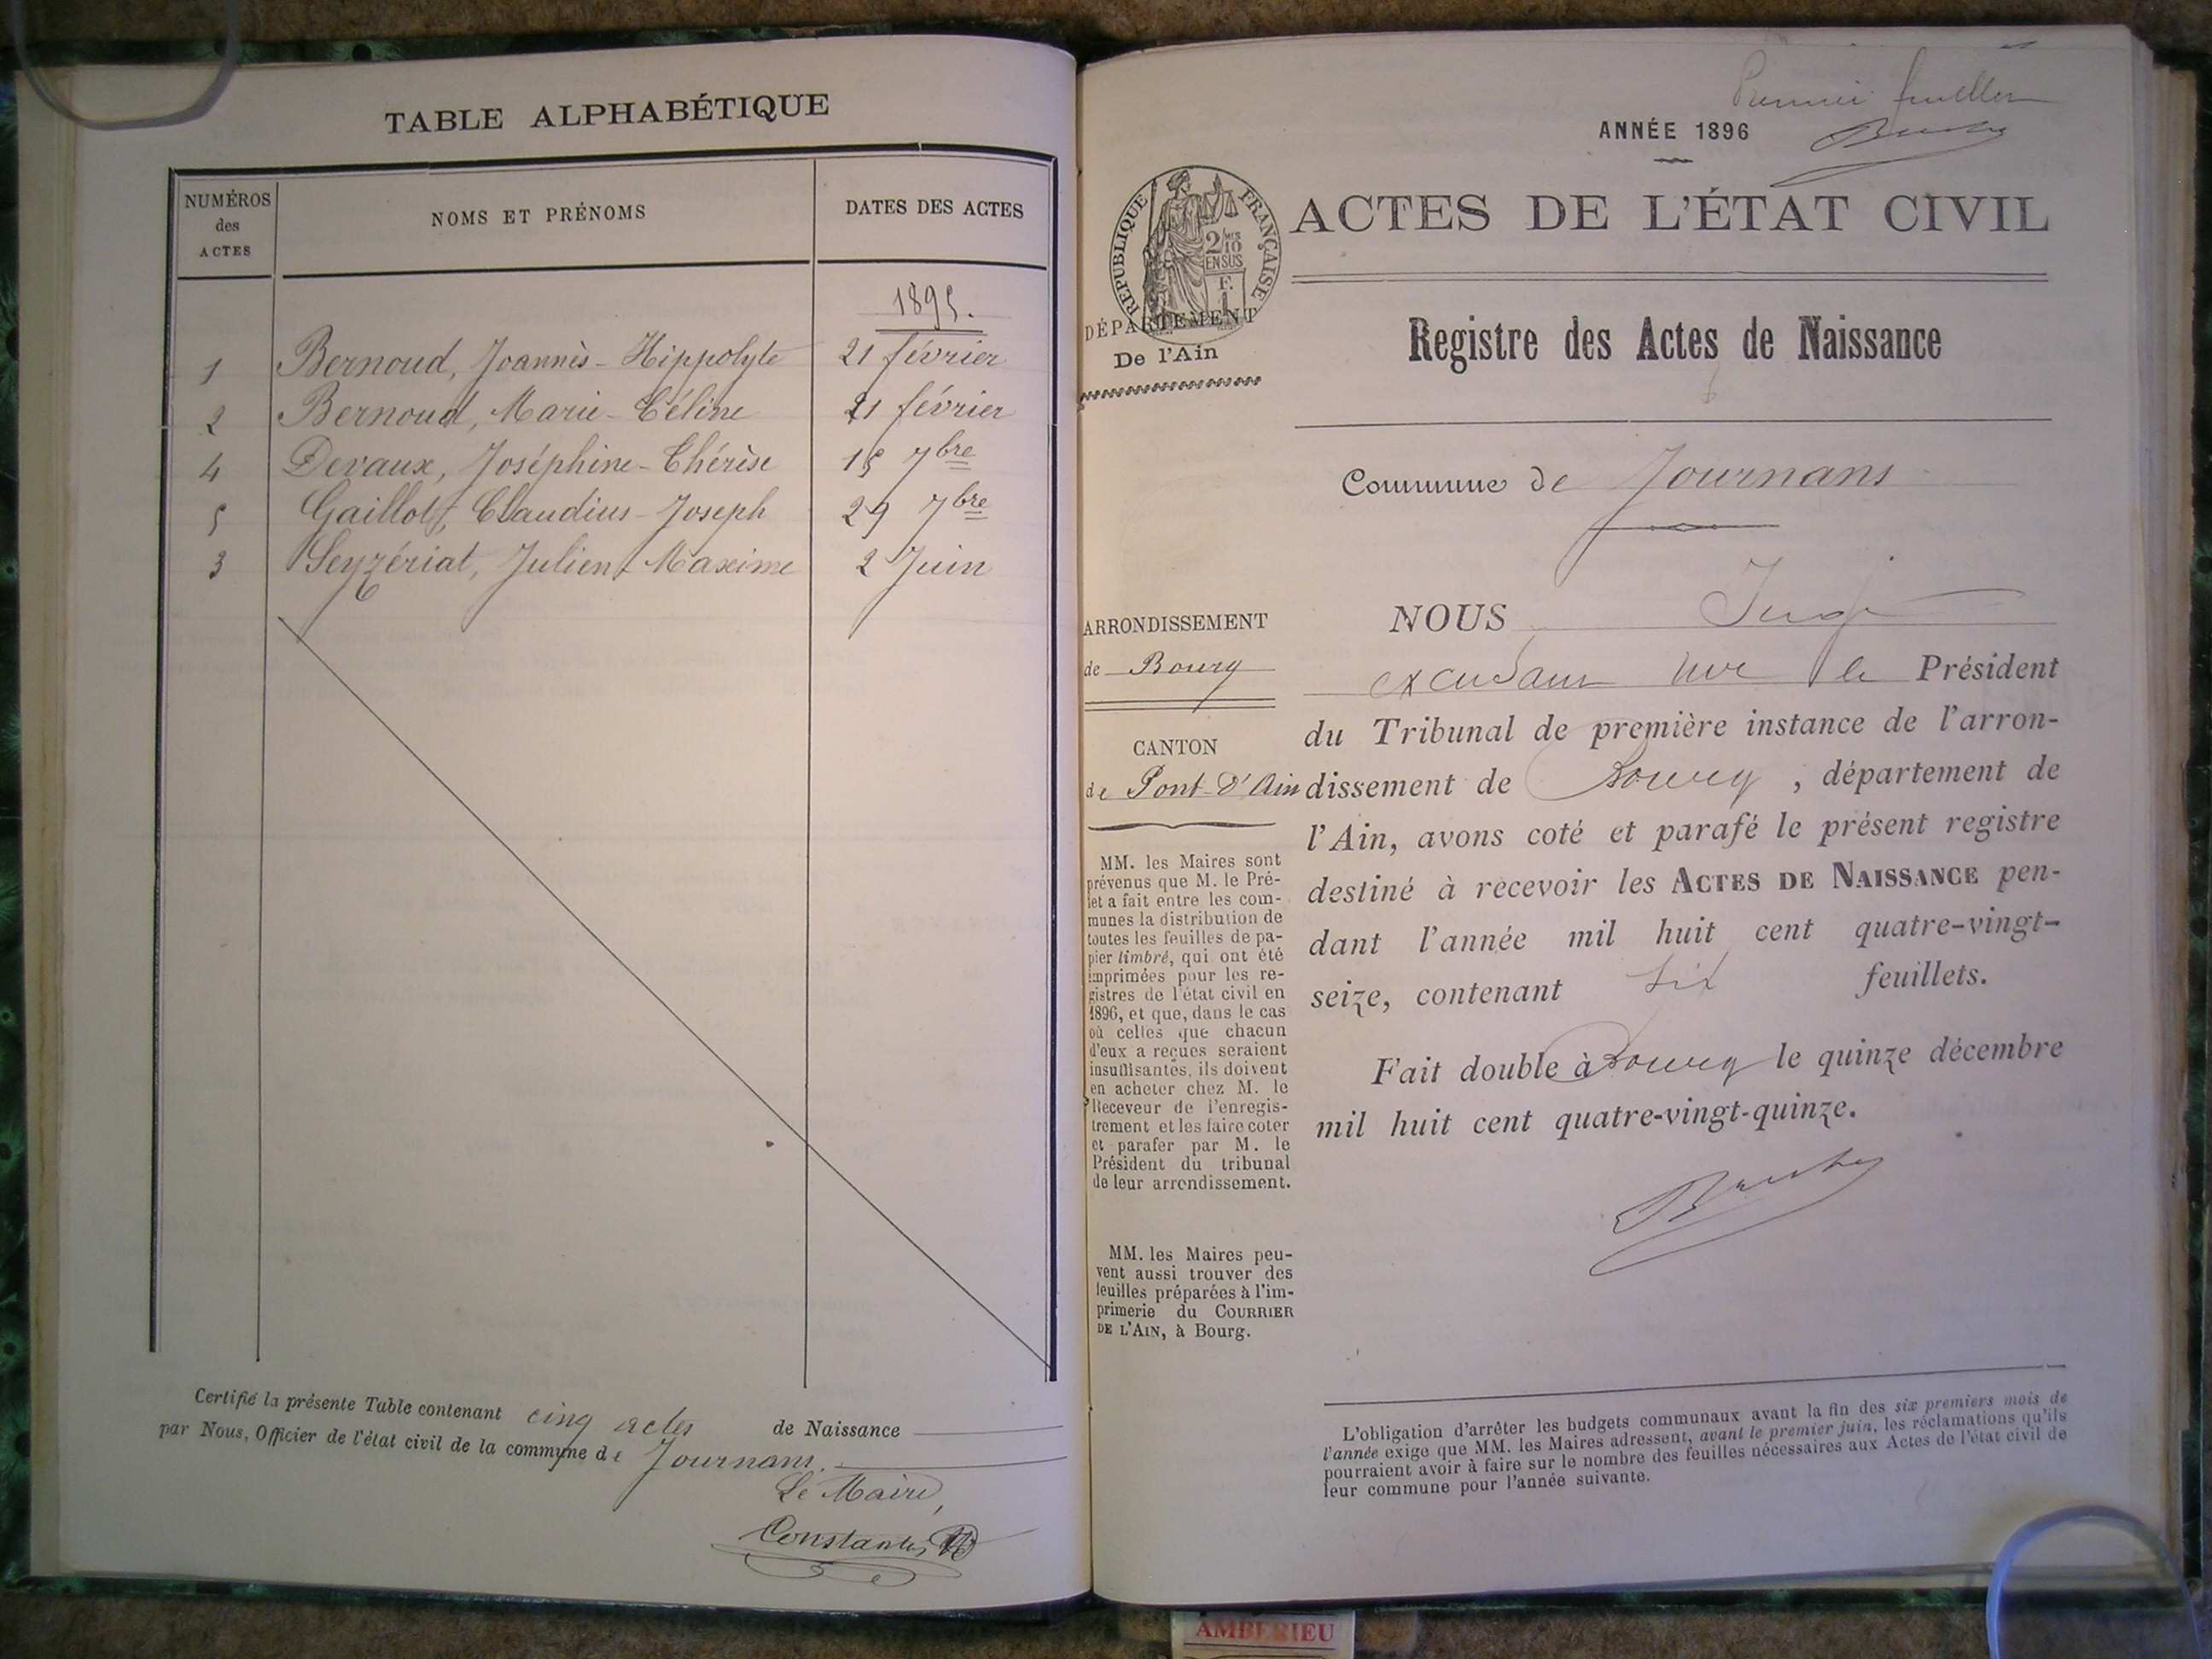 TABLE ALPHABÉTIQUE
NUMÉROS
des
ACTES
NOMS ET PRÉNOMS
DATES DES ACTES
1895.
1 Bernoud, Joannès-Hippolyte 21 février
2 Bernoud, Marie-Céline 21 février
4 Devaux, Joséphine-Thérèse 15 7bre
5 Gaillot, Claudius-Joseph 29 7bre
3 Seyzériat, Julien, Maxime 2 Juin
Certifié la présente Table contenant cinq actes de Naissance
par Nous, Officier de l'état civil de la commune de Journans.
Le Maire,
Premier feuillet
ANNÉE 1896
RÉPUBLIQUE FRANÇAISE
2/10 MES
EN SUS
F.
1
ACTES DE L'ÉTAT CIVIL
DÉPARTEMENT
De l'Ain
Registre des Actes de Naissance
Commune de Journans
ARRONDISSEMENT
de Bourg
CANTON
de Pont-d'Ain
MM. les Maires sont
prévenus que M. le Pré-
fet a fait entre les com-
munes la distribution de
toutes les feuilles de pa-
pier timbré, qui ont été
imprimées pour les re-
gistres de l'état civil en
1896, et que, dans le cas
où celles que chacun
d'eux a reçues seraient
insuffisantes, ils doivent
en acheter chez M. le
Receveur de l'enregis-
trement et les faire coter
et parafer par M. le
Président du tribunal
de leur arrondissement.
MM. les Maires peu-
vent aussi trouver des
feuilles préparées à l'im-
primerie du COURRIER
DE L'AIN, à Bourg.
NOUS Juge
le Président
du Tribunal de première instance de l'arron-
dissement de Bourg, département de
l'Ain, avons coté et parafé le présent registre
destiné à recevoir les ACTES DE NAISSANCE pen-
dant l'année mil huit cent quatre-vingt-
seize, contenant six feuillets.
Fait double à Bourg le quinze décembre
mil huit cent quatre-vingt-quinze.
L'obligation d'arrêter les budgets communaux avant la fin des six premiers mois de
l'année exige que MM. les Maires adressent, avant le premier juin, les réclamations qu'ils
pourraient avoir à faire sur le nombre des feuilles nécessaires aux Actes de l'état civil de
leur commune pour l'année suivante.
AMBERIEU